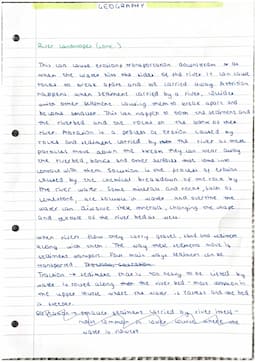 GEOGRAPHY
River Landscapes (cont.)
This can cause erosions transportation downstream
when the water hits the sides of the river it can cause
rocks to break apart and get carried away. Attrition
happens when sediment carried by a river, collides
with other sediment causing them to break apart and
become smaller. This can happen to both the sediments and
the riverbed and the rocks on the bank of the
river. Abrasion is a process of erosion caused by
rocks and sediment carried by the river as these
particles move down the stream they can wear away
the riverbed, banks and other surfaces that come into
contact with them. Solution is the process of erosion
caused by the chemical breakdown of the rock by
the river water. Some minerals and rocks, such as
limestone, are soluble in water and overtime the
water can dissolve these minerals, changing the shape
and texture of the river bed as well.
When rivers flow they carry gravel, sand and sediment
along with them. The way that sediment move is
sediment transport. Four main ways sediment can be
transported.
Traction → sediment that is too heavy to be lifted by
water is rolled along the river bed - most common in
the upper course, where the water is fastest and the bed
is steeper.
sediment carried by river itself -
most common in lower course where the
water is